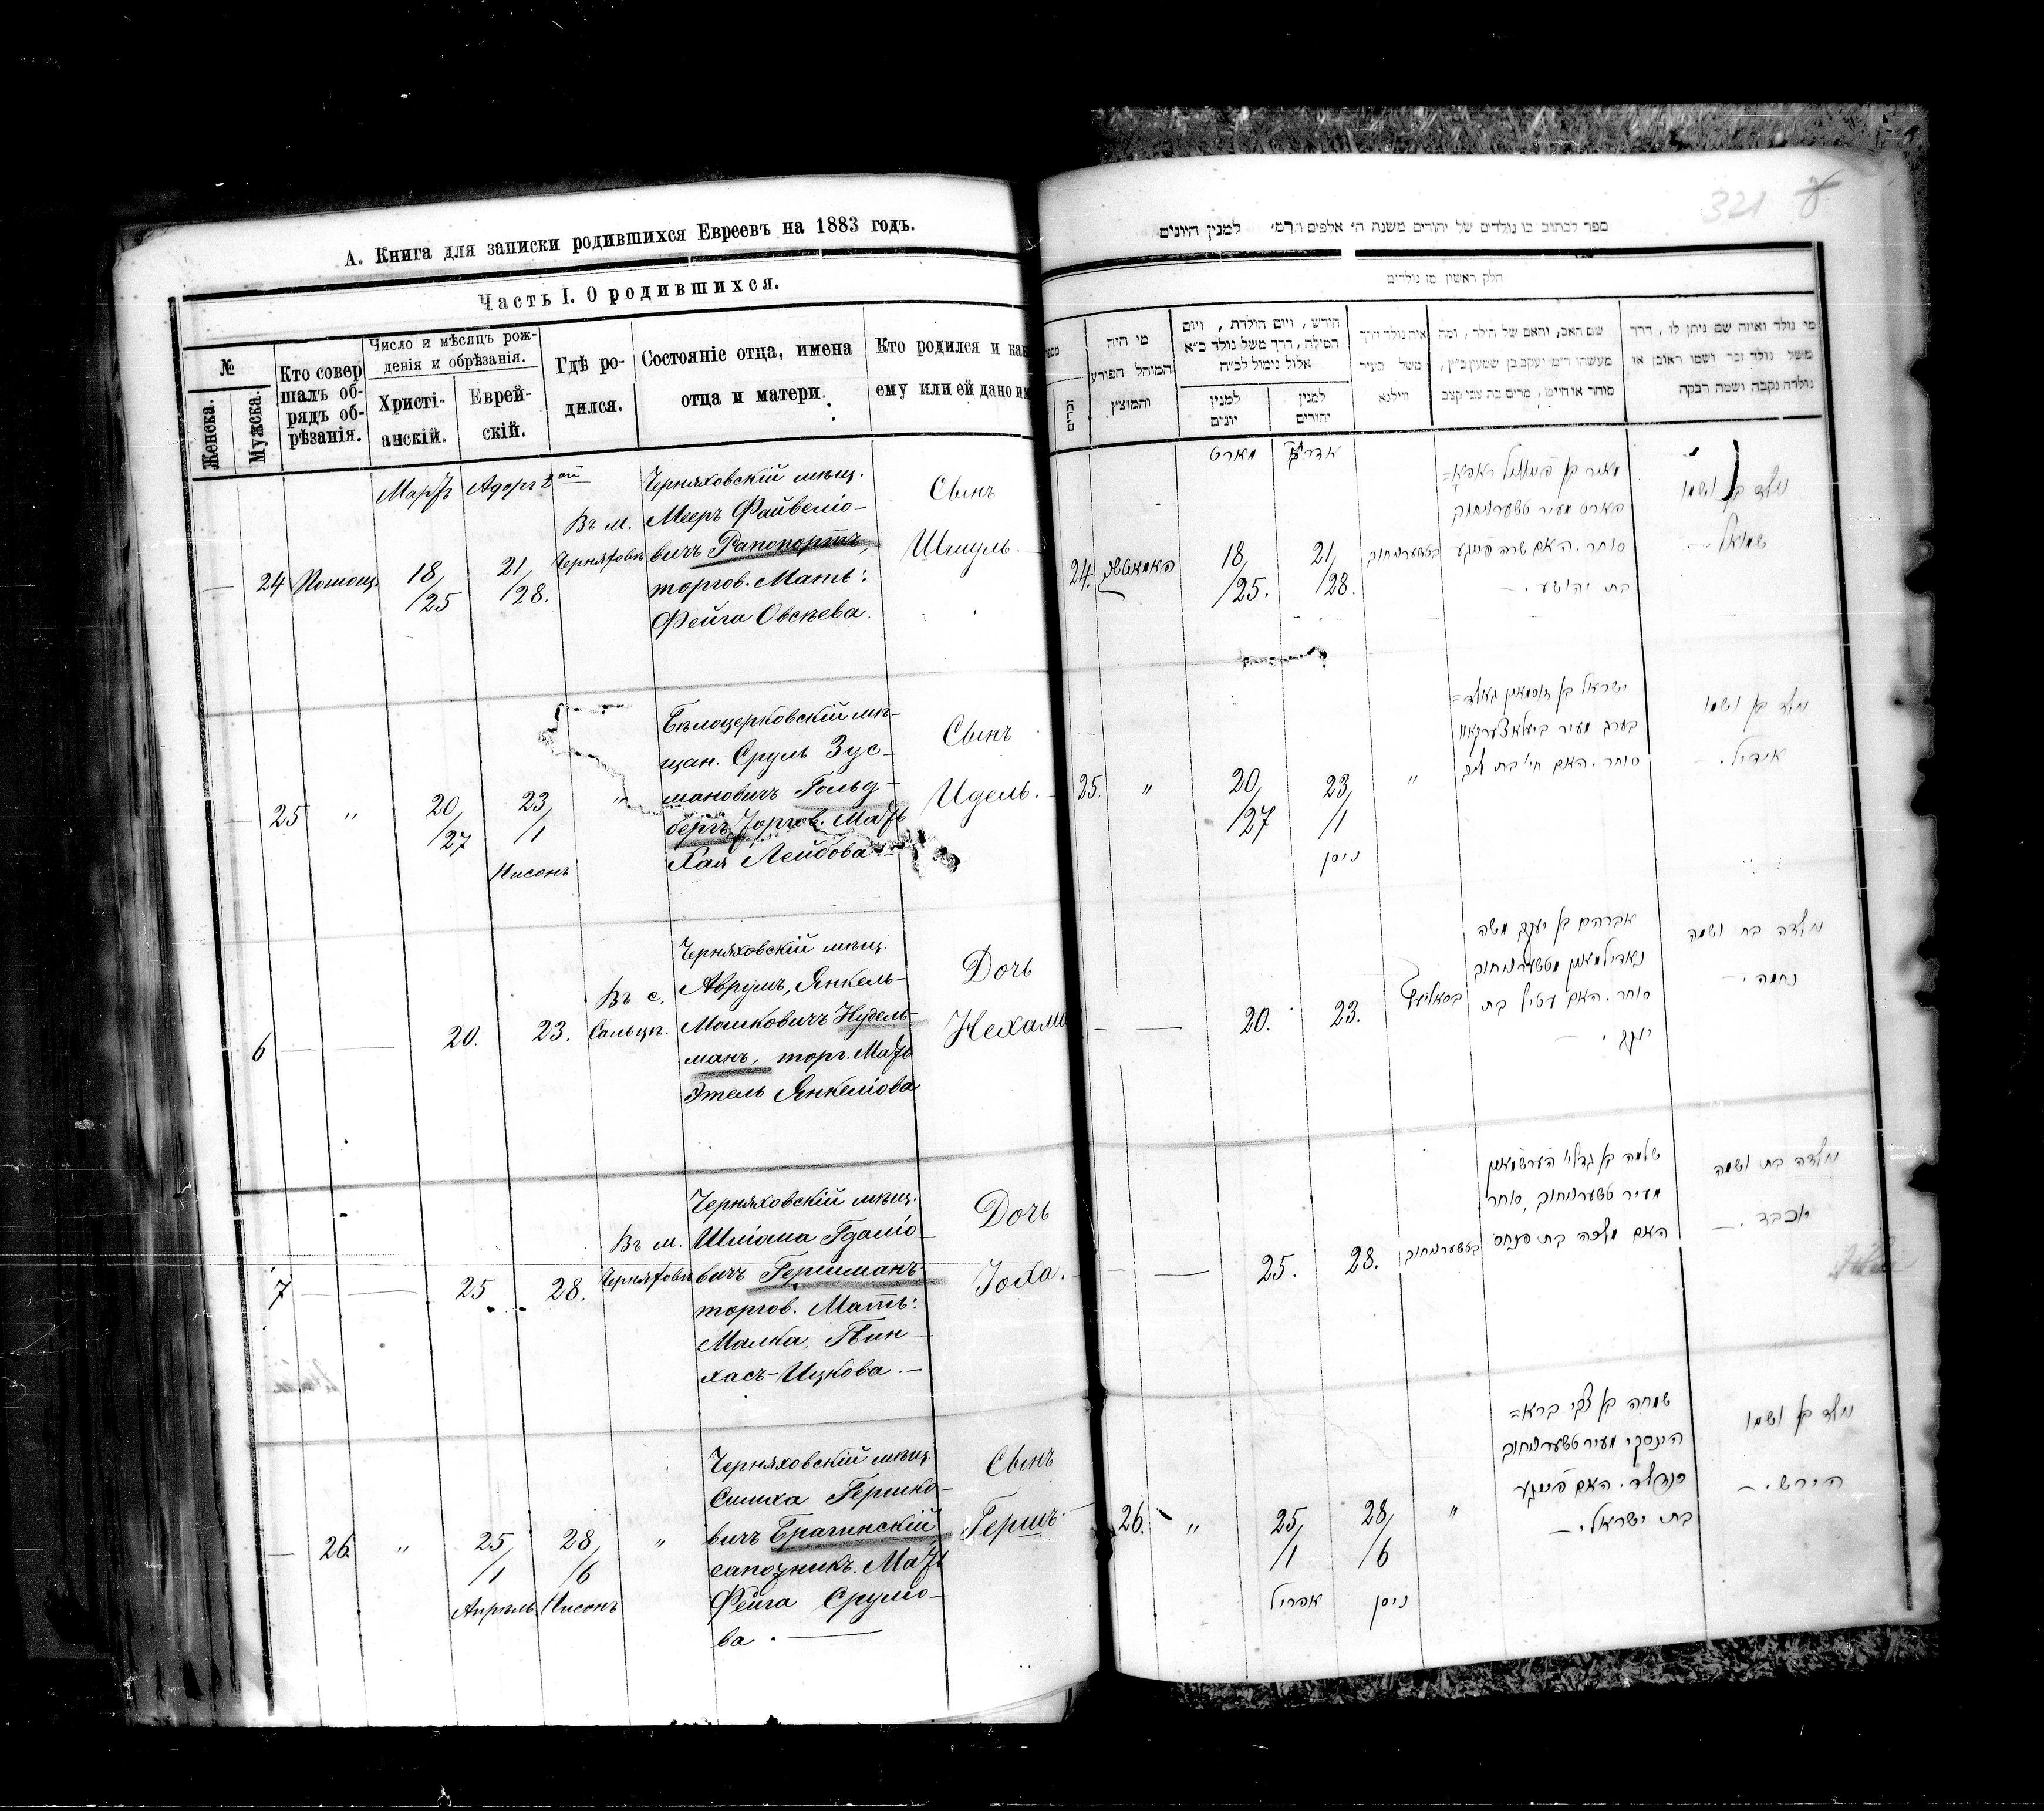 А. Книга для записки родившихся Евреевъ на 1883 годъ.
Часть I. О родившихся.
№
Женска.
Мужска.
Кто совер
шалъ об-
рядъ об-
рѣзанія.
Число и мѣсяцъ рож-
денія и обрѣзанія.
Христі-
анскій.
Еврей-
скій.
Гдѣ ро-
дился.
Состояніе отца, имена
отца и матери.
Кто родился и как
ему или ей дано им
Мартъ
Адоръ 2ой
— 24 Помощ. 18/25 21/28.
Въ м.
Черняховъ
Черняховскій мѣщ.
Мееръ Файвеліо-
вичъ Рапопортъ,
торгов. Мать:
Фейга Овсѣева.
Сынъ
Шмуль. —
— 25 " 20/27 23/1
Нисонъ
"
Бѣлоцерковскій мѣ-
щан. Сруль Зус-
мановичъ Гольд-
бергъ, торгов. Мать
Хая Лейбова —
Сынъ
Идель. —
6 — — 20. 23.
Въ с.
Сальцѣ.
Черняховскій мѣщ.
Аврумъ, Янкель-
Мошковичъ Нудель-
манъ, торг. Мать
Этель Янкеліова
Дочь
Нехама
7 — — 25 28.
Въ м.
Черняховъ
Черняховскій мѣщ.
Шліома Гдаліо-
вичъ Гершманъ
торгов. Мать:
Малка, Пин-
хасъ-Ицкова. —
Дочь
Іоха.
— 26. " 25/1 28/6
Апрѣль Нисонъ
"
Черняховскій мѣщ.
Симха Гершко-
вичъ Брагинскій
сапожникъ. Мать
Фейга Сруліо-
ва. —
Сынъ
Гершъ
321
ספר לכתוב בו נולדים של יהודים משנת ה' אלפים תרמ' למנין היונים
חלק ראשון מן נולדים
מי נולד ואיזה שם ניתן לו, דרך
משל נולד זכר ושמו ראובן או
נולדה נקבה ושמה רבקה
שם האב, והאם של הילד, ומה
מעשהו ר"מ יעקב בן שמעון כ"ץ,
סוחר או חייט, מרים בת צבי קצב
איה נולד דרך
משל בעיר
ווילנא
חודש, ויום הולדת, ויום
המילה, דרך משל נולד כ"א
אלול נימול לכ"ח
למנין
יהודים
למנין
יונים
מי היה
המוהל הפורע
והמוצץ
אדר
מארט
נולד בן ושמו
שמואל
סוחר. האם שרה פייגע
בת יהושע. —
21/28.
18/25.
24.
נולד בן ושמו
אידיל. —
ישראל בן זוסמאן גאלד=
בערג מעיר ביעלאצערקאוו
סוחר. האם חי' בת ליב
"
23/1
ניסן
20/27
"
25.
נולדה בת ושמה
נחמה. —
אברהם בן יעקב משה
נאדילמאן מטשערנוחוב
סוחר. האם עטיל בת
יעקב. —
23.
20.
—
נולדה בת ושמה
יוכבד. —
שלמה בן גדלי' הערשמאן
מעיר טשערנוחוב, סוחר
האם מלכה בת פנחס
בטשערנוחוב
28.
25.
—
נולד בן ושמו
הירש. —
שמחה בן צבי ברא=
הינסקי מעיר טשערנוחוב
סנדלר. האם פייגע
בת ישראל. —
"
28/6
ניסן
25/1
אפריל
"
26.